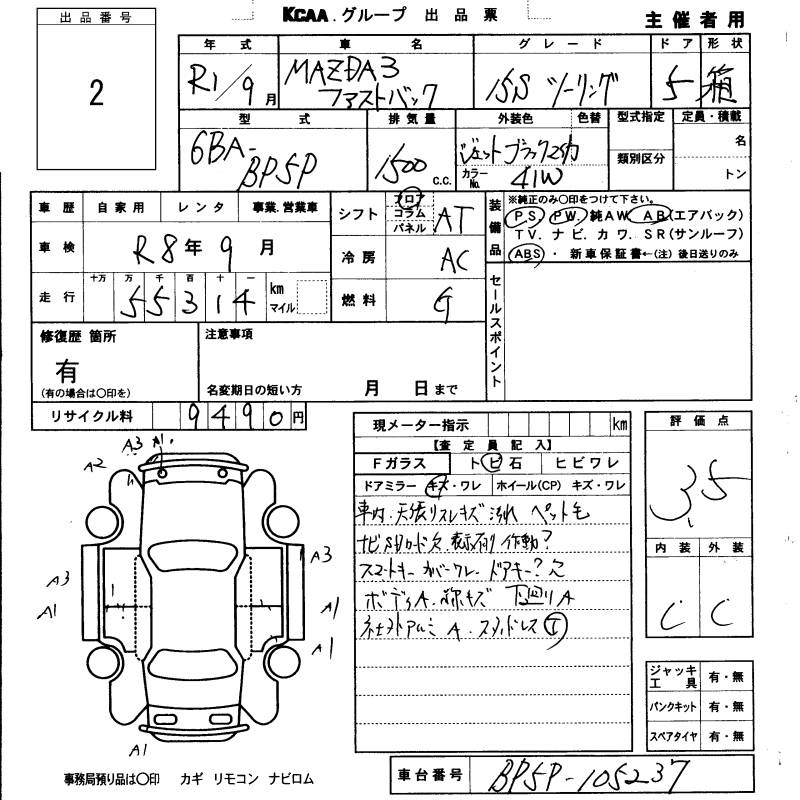 出品番号
2
KCAA.グループ 出品票
主催者用
年式 車名 グレード ドア 形状
R1/9月 MAZDA3 ファストバック 15S ツーリング 5 箱
型式 排気量 外装色 色替 型式指定 定員・積載
6BA-BP5P 1500 c.c. ジェットブラックマイカ 名
カラーNo. 41W 類別区分 トン
車歴 自家用 レンタ 事業.営業車
シフト フロア コラム パネル AT
装備品 ※純正のみ○印をつけて下さい。
P.S PW. 純AW AB(エアバック)
TV.ナビ.カワ.SR(サンルーフ)
ABS・新車保証書←(注)後日送りのみ
車検 R8年9月
冷房 AC
走行 十万 万 千 百 十 一
55314 km マイル
燃料 G
セールスポイント
修復歴 箇所
有
(有の場合は○印を)
注意事項
名変期日の短い方 月 日まで
リサイクル料 9490円
現メーター指示 km
【査定員記入】
Fガラス トビ石 ヒビワレ
ドアミラー キズ・ワレ ホイール(CP) キズ・ワレ
車内.天張りスレキズ 汚れ ペット毛
ナビSDカード欠. 作動?
スマートキー カバーワレ.ドアキー?欠
ボディA. キズ 下廻りA
アルミ A.スタッドレス
評価点
3.5
内装 外装
C C
ジャッキ 工具 有・無
パンクキット 有・無
スペアタイヤ 有・無
A3 A1.
A2
A3
A3
A1
A1
A1
A1
事務局預り品は○印 カギ リモコン ナビロム
車台番号 BP5P-105237